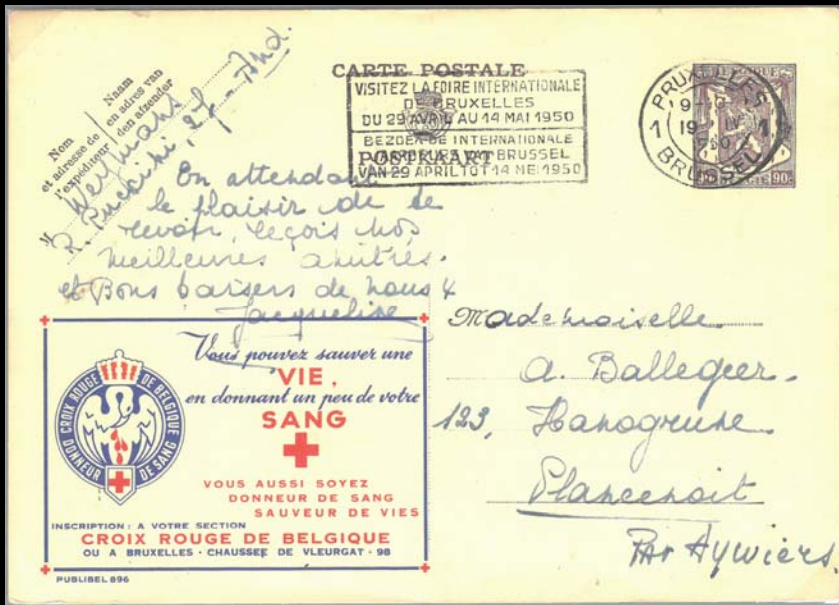 Nom
et adresse de
l'expéditeur
Naam
en adres van
den afzender
M Weymans
R. Puccini, 27 - And.
CARTE POSTALE
POSTKAART
VISITEZ LA FOIRE INTERNATIONALE
DE BRUXELLES
DU 29 AVRIL AU 14 MAI 1950
BEZOEK DE INTERNATIONALE
JAARBEURS VAN BRUSSEL
VAN 29 APRIL TOT 14 MEI 1950
BRUXELLES
1 19 IV 1
BRUSSEL
BELGIQUE
90c
En attendant
le plaisir de te
revoir, reçois nos
meilleures amitiés.
et Bons baisers de nous 4
Jacqueline
Vous pouvez sauver une
VIE,
en donnant un peu de votre
SANG
CROIX ROUGE DE BELGIQUE
DONNEUR DE SANG
VOUS AUSSI SOYEZ
DONNEUR DE SANG
SAUVEUR DE VIES
INSCRIPTION : A VOTRE SECTION
CROIX ROUGE DE BELGIQUE
OU A BRUXELLES · CHAUSSEE DE VLEURGAT · 98
PUBLIBEL 896
Mademoiselle
A. Ballegeer.
123, Hanogrune
Plancenoit
Par Aywiers.